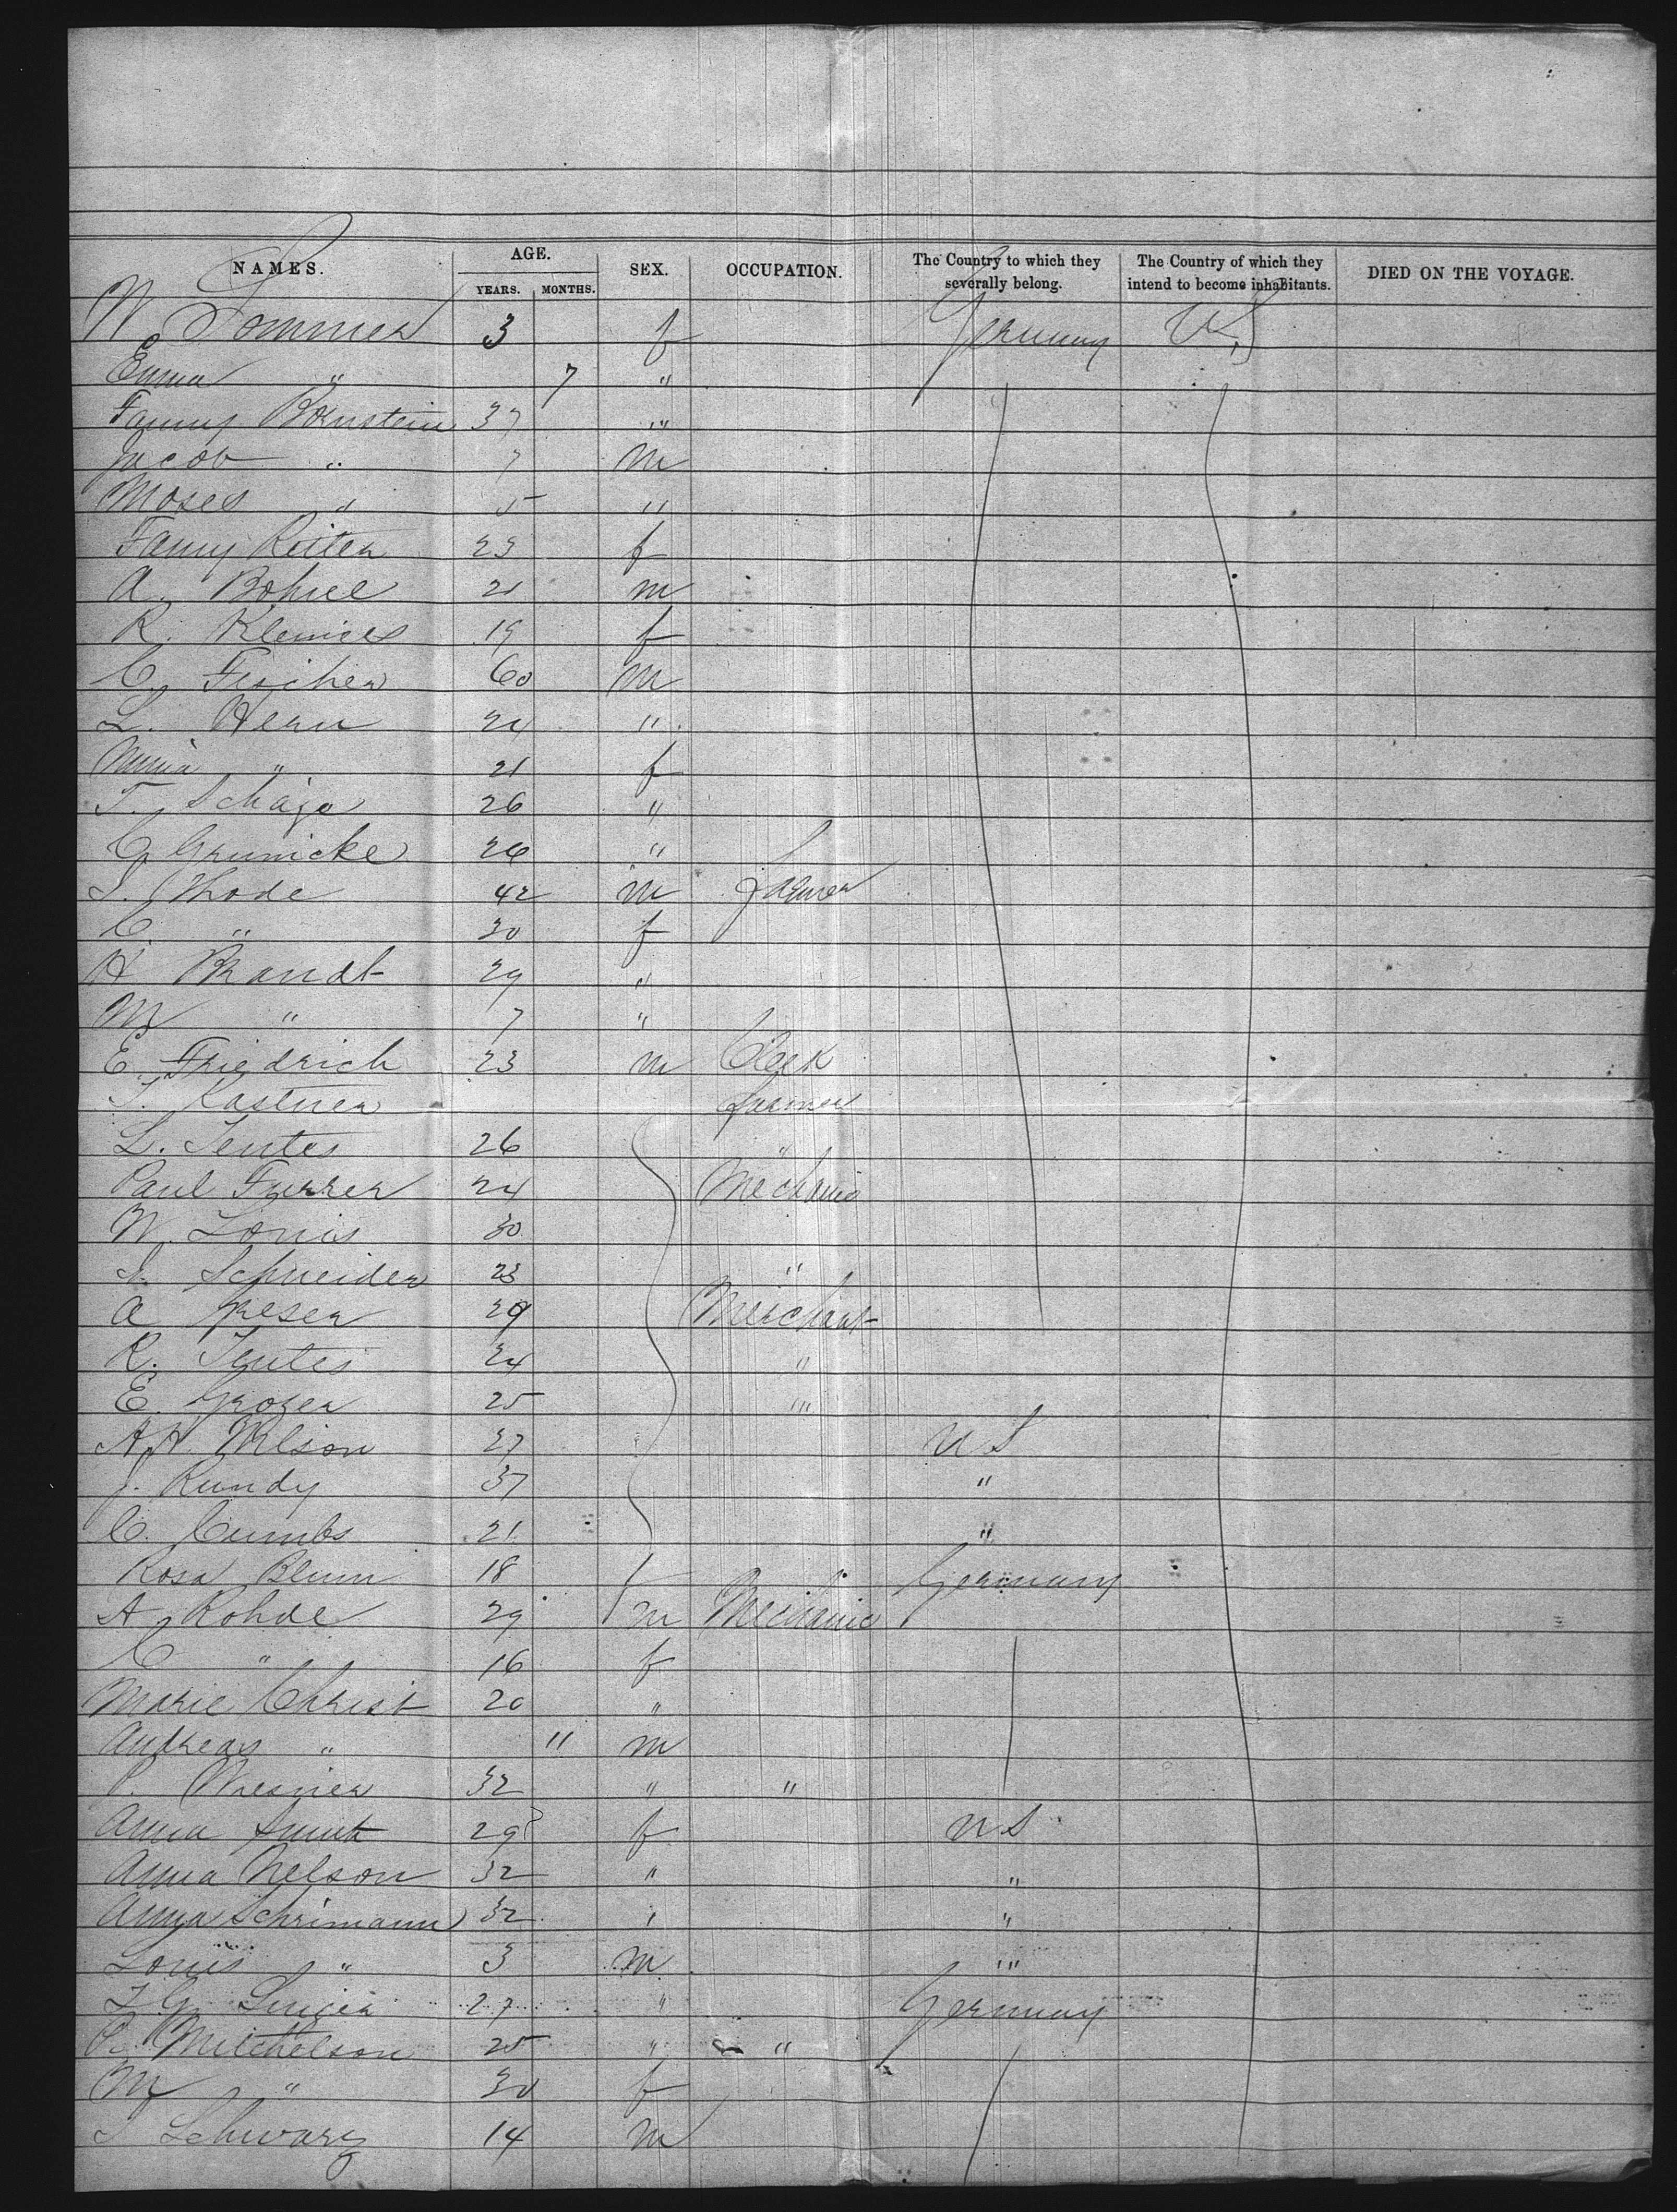 NAMES. AGE. SEX. OCCUPATION. The Country to which they severally belong. The Country of which they intend to become inhabitants. DIED ON THE VOYAGE.
YEARS. MONTHS.
W Sommer 3 f Germany U.S
Emma " 7 "
Fanny Bornstein 37 "
Jacob " 7 m
Moses " 5 "
Fanny Reiter 23 f
A. 21 m
R. 19 f
C. Fischer 60 m
L. Hern 24 "
" 21 f
T. 26 "
C. Grunicke 26 "
42 m Farmer
C " 30 f
H Brandt 29 "
M " 7 "
E. Friedrich 23 m Clerk
Kastner Farmer
L. Tentes 26 "
Paul Furrer 24 Mechanic
W. Louis 30
Schneider 23 "
A Greser 29 Merchant
R. Tentes 24 "
E. Groser 25 "
A. A. Wilson 27 U S
J. Rundy 37 "
C. Cumbs 21 "
Rosa Blum 18 f Germany
A. Rohde 29 m Mechanic
C " 16 f
Marie Christ 20 "
Andreas " 11 m
P. 32 " "
Anna Smith 29 f U S
Anna Nelson 32 " "
Anna Schrimann 32 " "
Louis " 3 m "
27 " Germany
Mitchelson 25 " "
M " 30 f
Schwarz 14 m